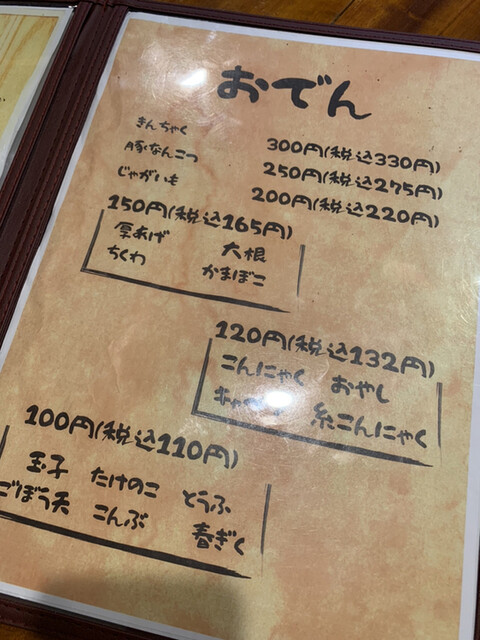 おでん
きんちゃく 300円(税込330円)
豚なんこつ 250円(税込275円)
じゃがいも 200円(税込220円)
150円(税込165円)
厚あげ 大根
ちくわ かまぼこ
120円(税込132円)
こんにゃく おやし
糸こんにゃく
100円(税込110円)
玉子 たけのこ とうふ
ごぼう天 こんぶ 春ぎく